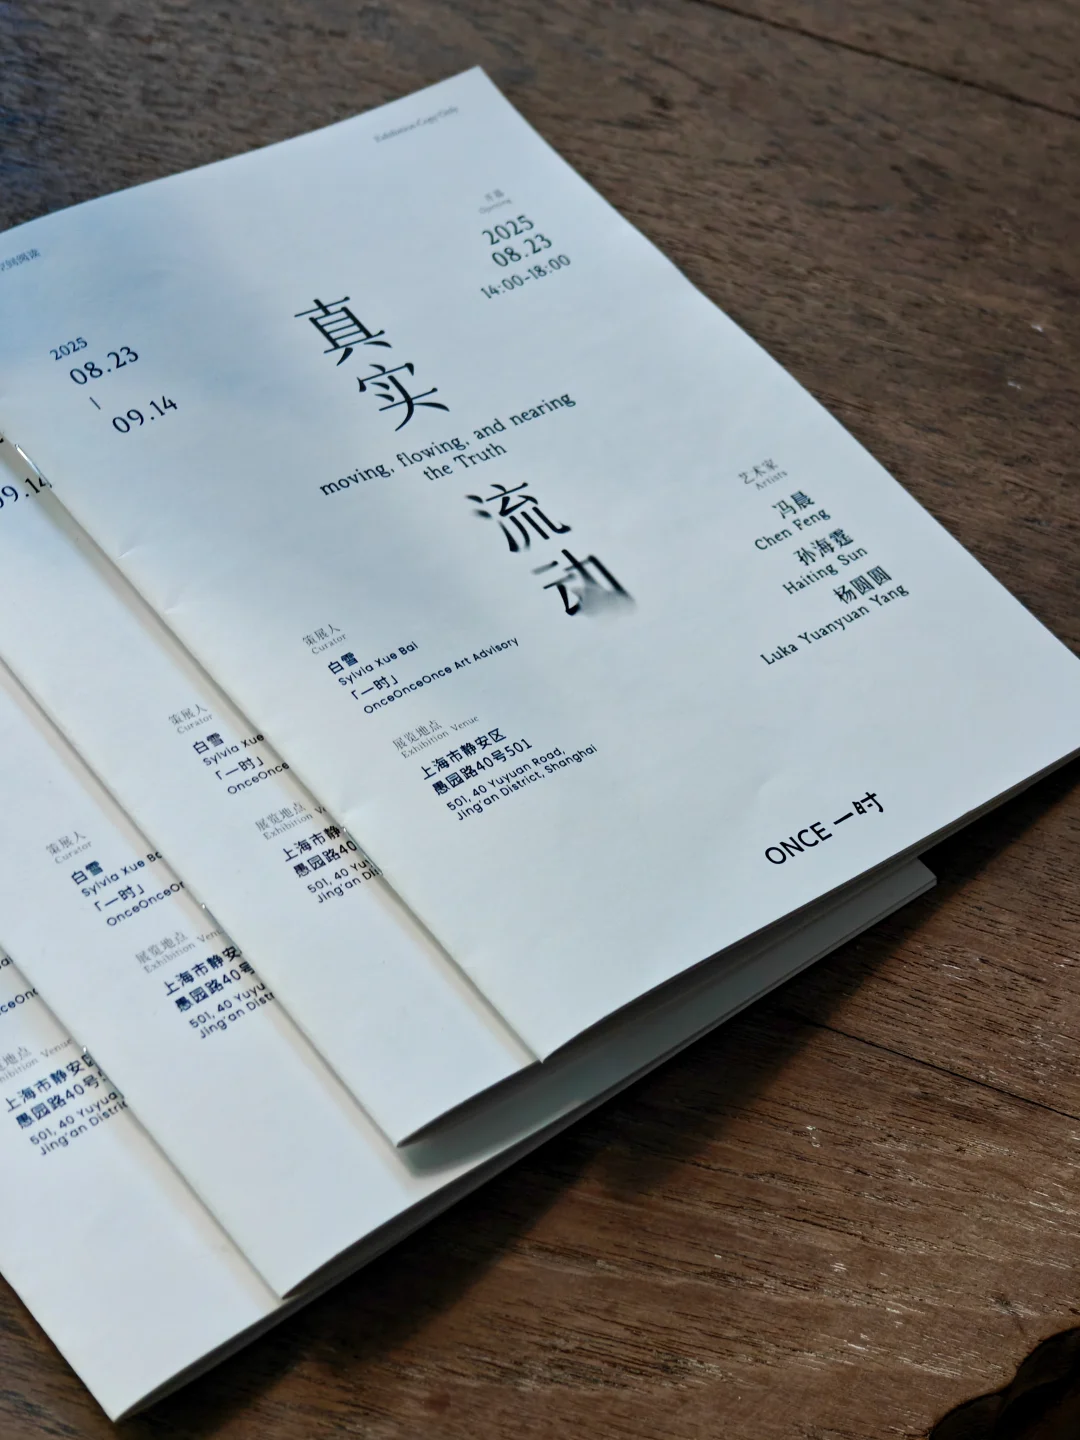 Exhibition Copy Only
空间阅读
开幕
Opening
2025
08.23
14:00-18:00
2025
08.23
|
09.14
真
实
moving, flowing, and nearing
the Truth
流
动
艺术家
Artists
冯晨
Chen Feng
孙海霆
Haiting Sun
杨圆圆
Luka Yuanyuan Yang
策展人
Curator
白雪
Sylvia Xue Bai
「一时」
OnceOnceOnce Art Advisory
展览地点
Exhibition Venue
上海市静安区
愚园路40号501
501, 40 Yuyuan Road,
Jing'an District, Shanghai
ONCE 一时
09.14
策展人
Curator
白雪
Sylvia Xue
「一时」
OnceOnce
展览地点
Exhibition
上海市静
愚园路40
501, 40
Jing'an
策展人
Curator
白雪
Sylvia Xue
「一时」
OnceOnce
展览地点
Exhibition Venue
上海市静安
愚园路40号
501, 40
Jing'an
地点
Venue
上海市静安区
愚园路40号
501, 40
Jing'an